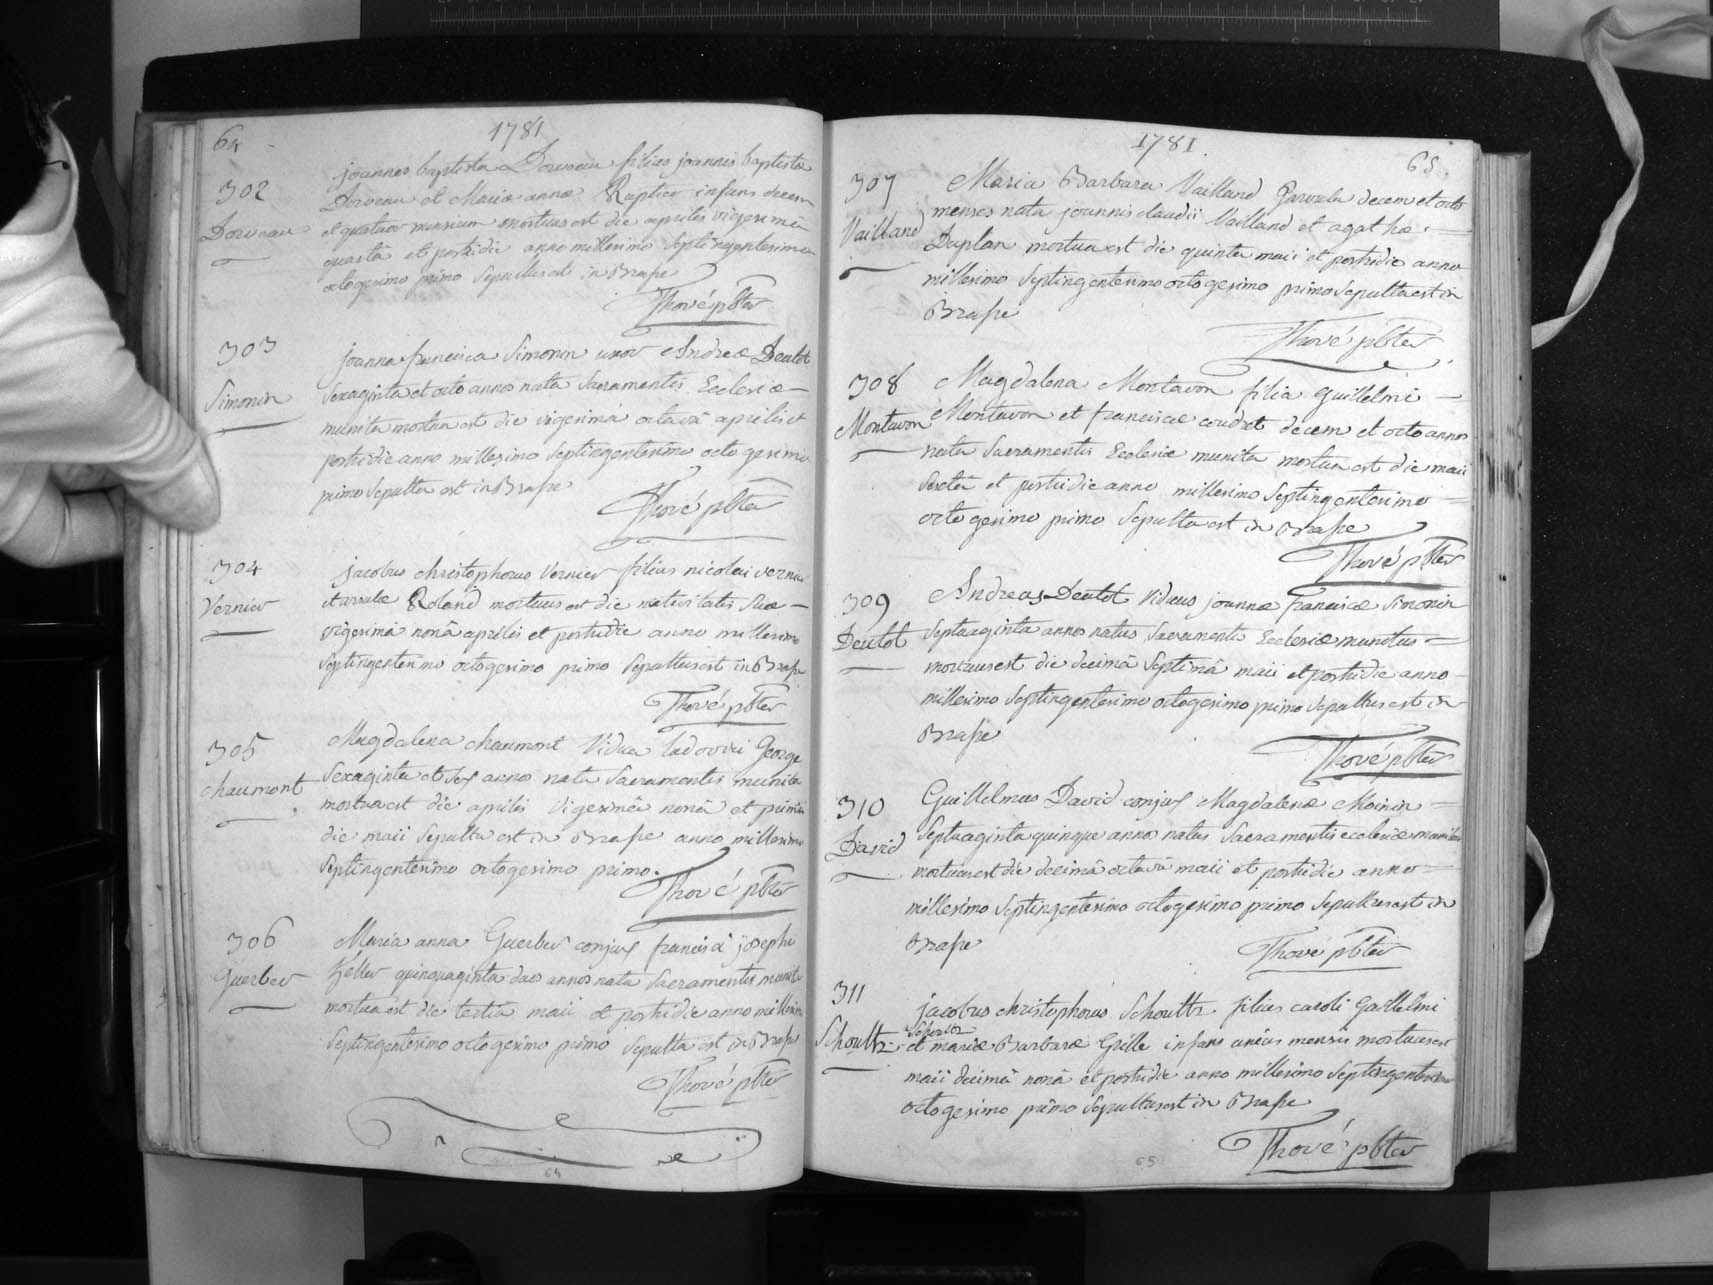 64
1781
302
Dorveau
joannes baptista Dorveau filius joannis baptistæ
Dorveau et Mariæ annæ infans decem
et quatuor mensium mortuus est die aprilis vigesimâ
quarta et postridie anno millesimo Septingentesimo
octogesimo primo Sepultus est in Brape
Thové pbter
303
Simonin
joanna francisca Simonin uxor Andreæ Deulot
Sexaginta et octo annos nata Sacramentis Ecclesiæ
munita mortua est die vigesimâ octavâ aprilis et
postridie anno millesimo Septingentesimo octogesimo
primo Sepulta est in Brape
Thové pbter
304
Vernier
jacobus christophorus Vernier filius nicolai vernier
et ursulæ Roland mortuus est die nativitatis Suæ
vigesimâ nonâ aprilis et postridie anno millesimo
Septingentesimo octogesimo primo Sepultus est in Brape
Thové pbter
305
chaumont
Magdalena chaumont Vidua ludovici George
Sexaginta et Sex annos nata Sacramentis munita
mortua est die aprilis Vigesimâ nonâ et primâ
die maii Sepulta est in Brape anno millesimo
Septingentesimo octogesimo primo.
Thové pbter
306
Guerber
Maria anna Guerber conjux francisci josephi
quinquaginta duos annos nata Sacramentis munita
mortua est die tertiâ maii et postridie anno millesimo
Septingentesimo octogesimo primo Sepulta est in Brape
Thové pbter
64
1781.
65.
307
Vailland
Maria Barbara Vailland Parvula decem et octo
menses nata joannis claudii Vailland et agathæ
Duplan mortua est die quinta maii et postridie anno
millesimo Septingentesimo octogesimo primo Sepulta est in
Brape
Thové pbter
308
Montavon
Magdalena Montavon filia Guillelmi
Montavon et franciscæ coudret decem et octo annos
nata Sacramentis Ecclesiæ munita mortua est die maii
Sextâ et postridie anno millesimo Septingentesimo
octogesimo primo Sepulta est in Brape
Thové pbter
309
Deulot
Andreas Deulot Viduus joannæ franciscæ Simonin
Septuaginta annos natus Sacramentis Ecclesiæ munitus
mortuus est die decimâ Septimâ maii et postridie anno
millesimo Septingentesimo octogesimo primo Sepultus est in
Brape
Thové pbter
310
David
Guillelmus David conjux Magdalenæ Moinin
Septuaginta quinque annos natus Sacramentis ecclesiæ munitus
mortuus est die decimâ octavâ maii et postridie anno
millesimo Septingentesimo octogesimo primo Sepultus est in
Brape
Thové pbter
311
Schoultz
jacobus christophorus Schoultz filius caroli Guillelmi
Schoultz
et mariæ Barbaræ Grille infans unius mensis mortuus est
maii decimâ nonâ et postridie anno millesimo Septingentesimo
octogesimo primo Sepultus est in Brape
Thové pbter
65